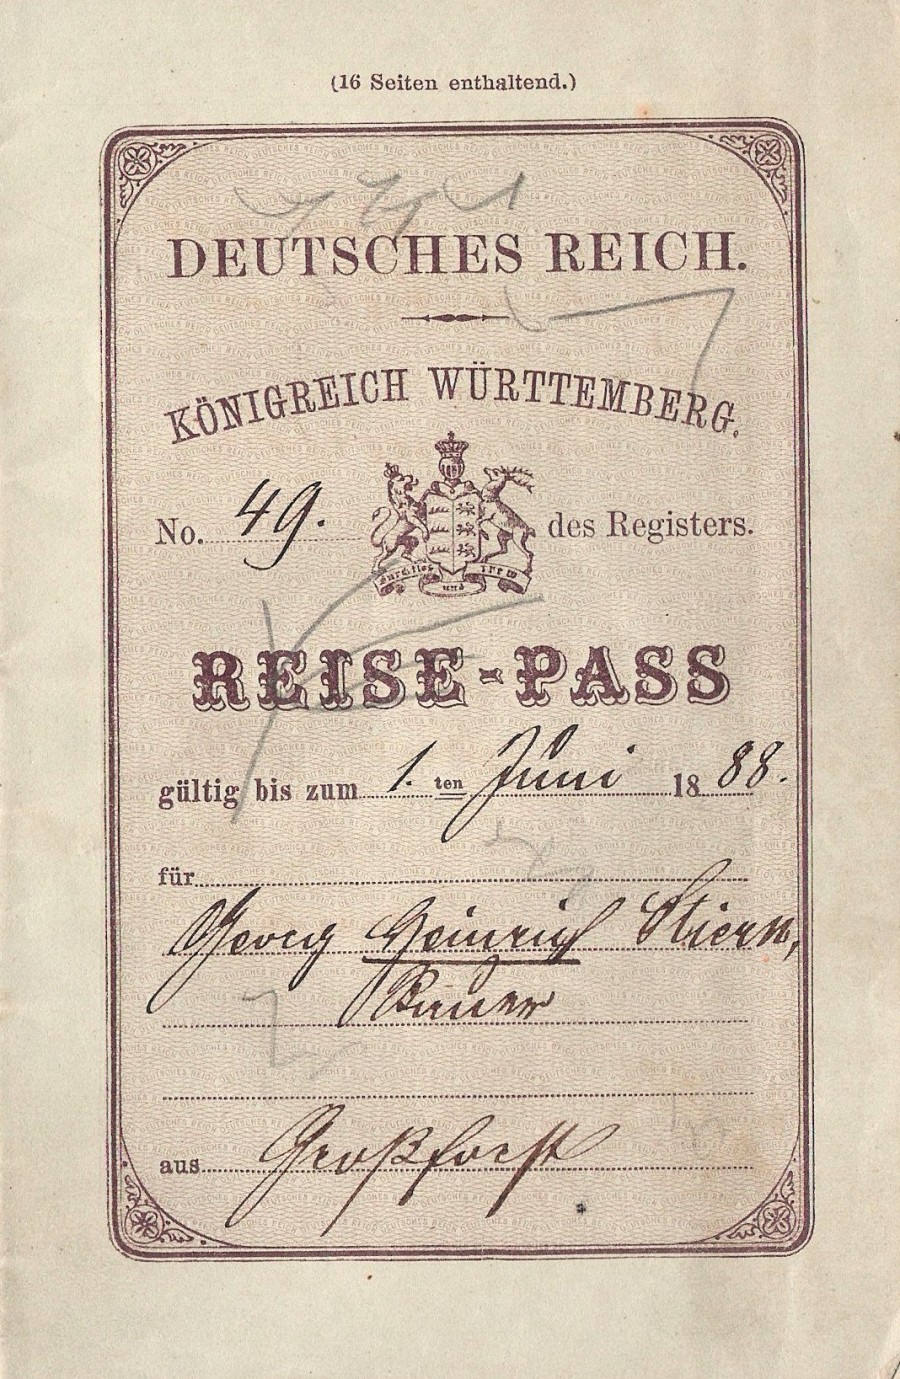 (16 Seiten enthaltend.)
DEUTSCHES REICH.
KÖNIGREICH WÜRTTEMBERG.
No. 49. des Registers.
Furchtlos und trew
REISE-PASS
gültig bis zum 1. ten Juni 1888.
für
Georg Heinrich Stiern,
Bauer
aus Großforst